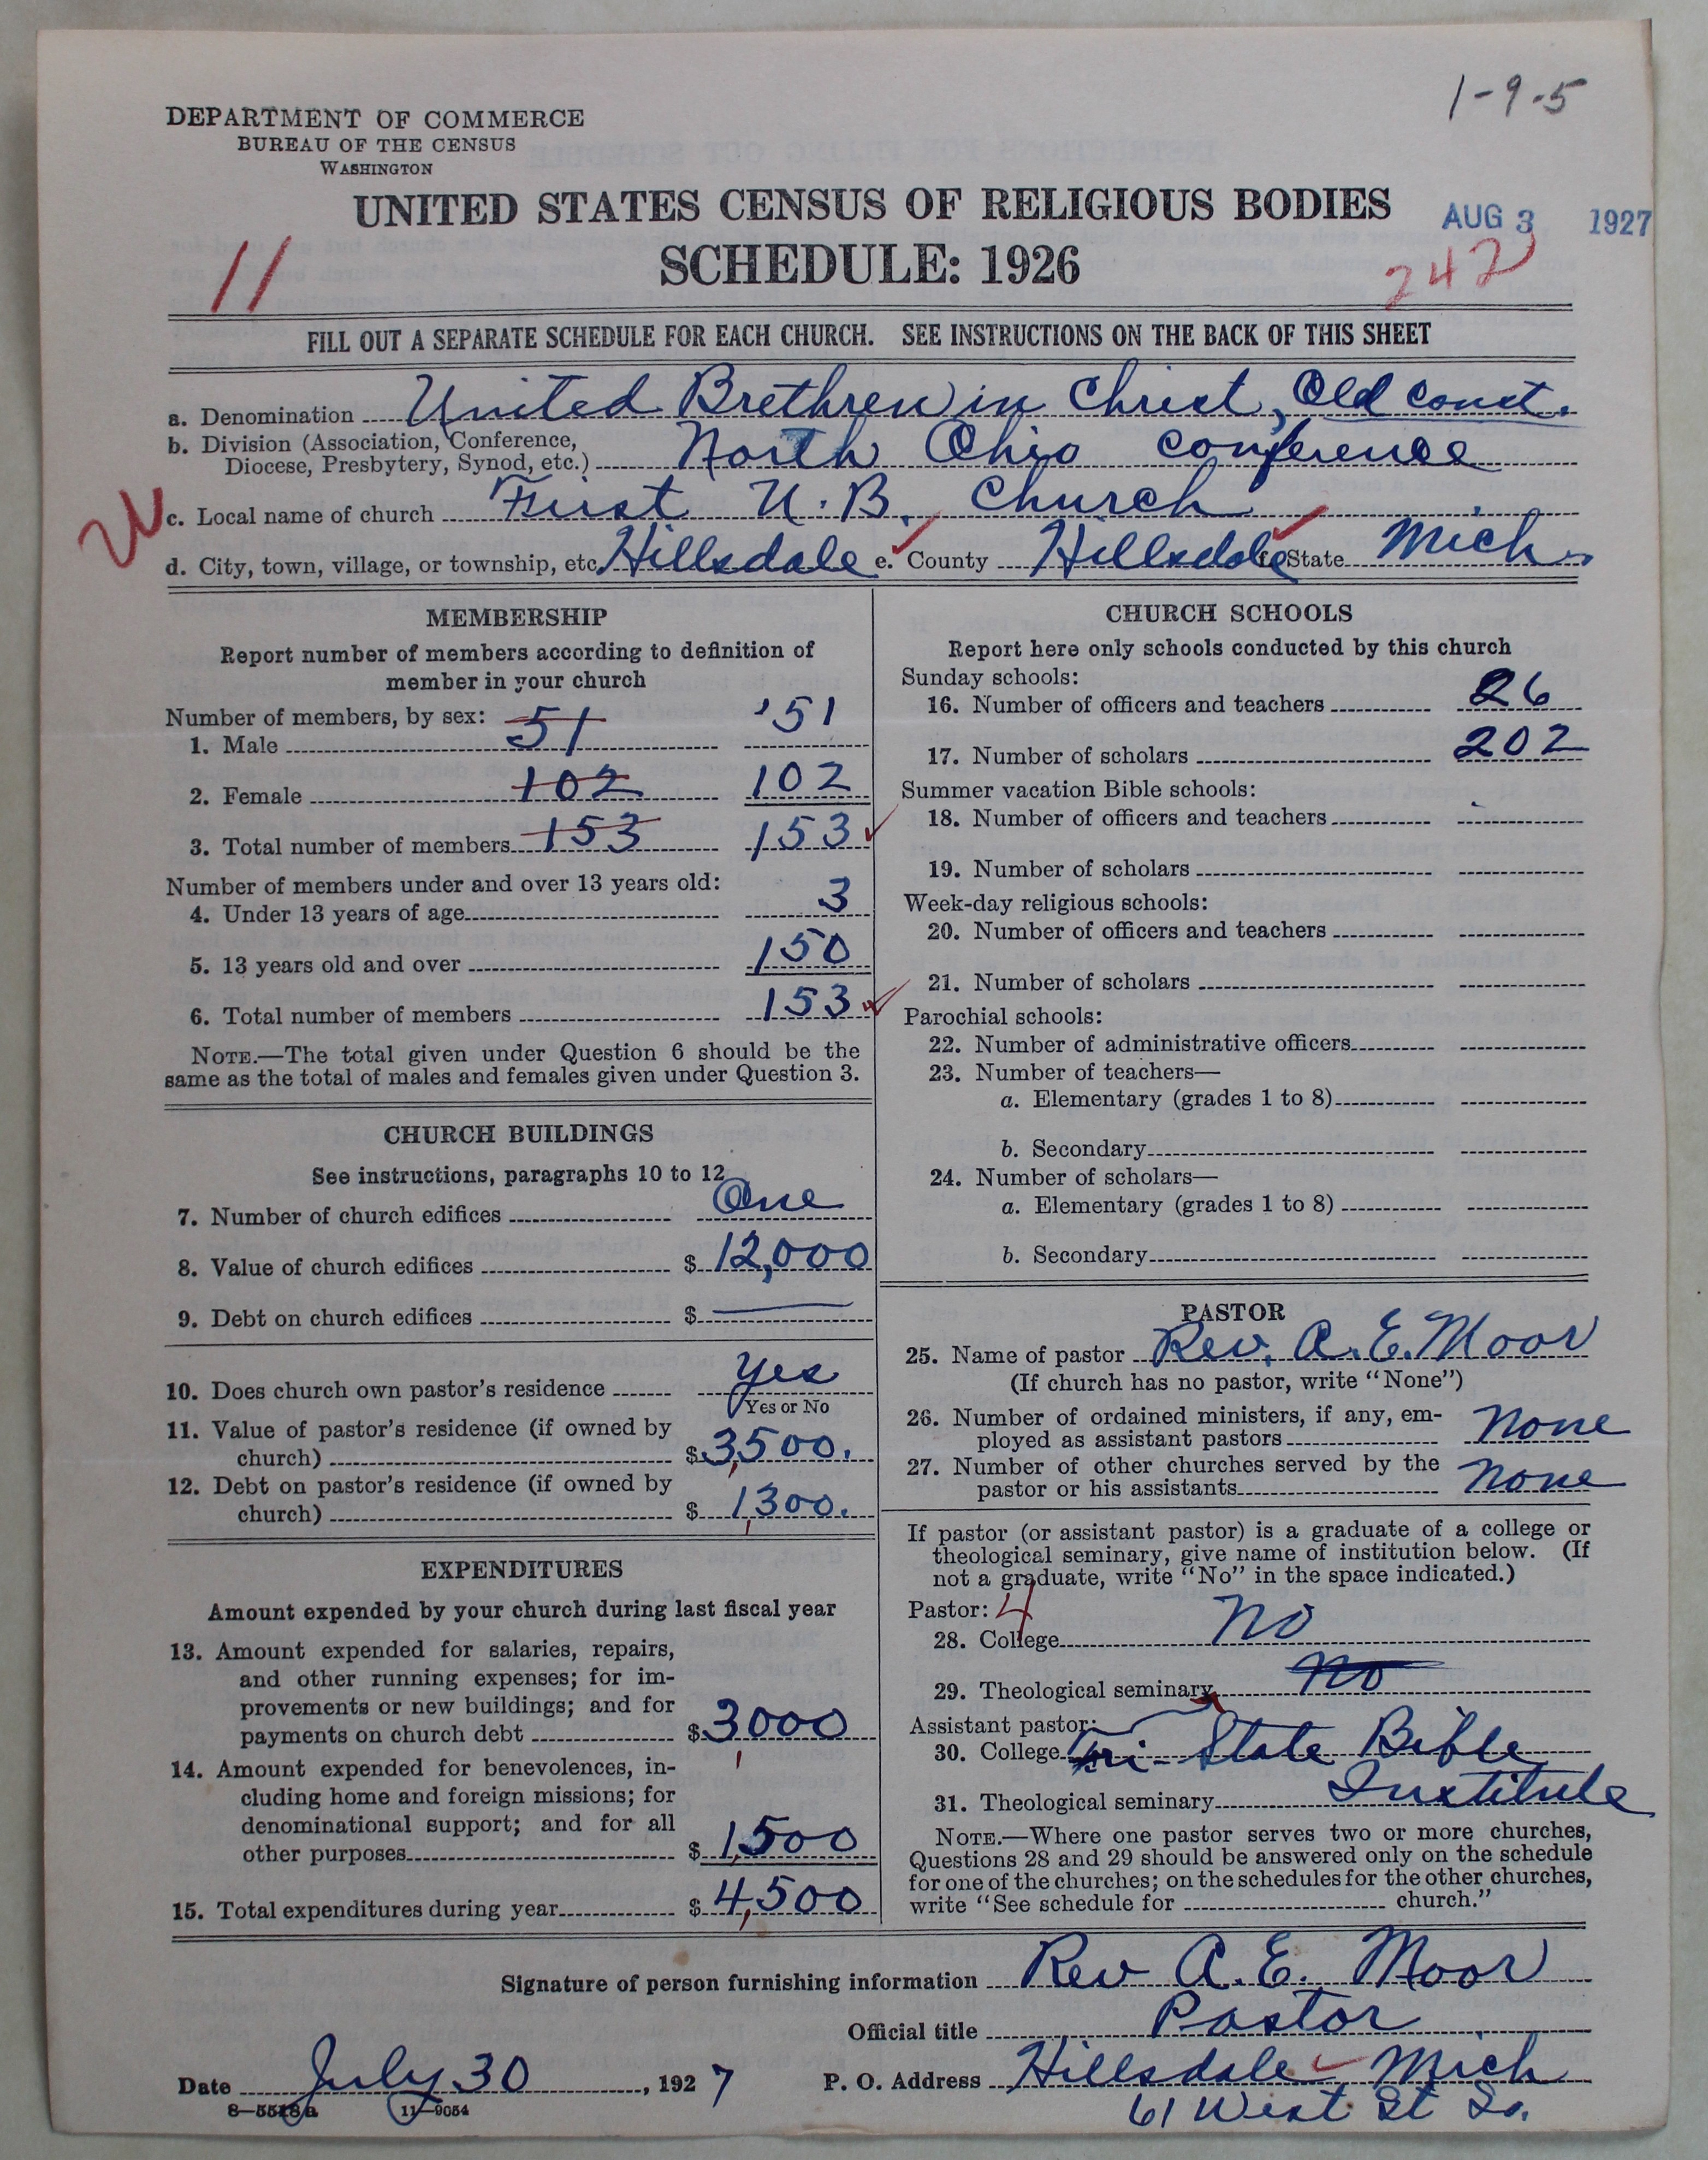 1-9-5
DEPARTMENT OF COMMERCE
BUREAU OF THE CENSUS
WASHINGTON
UNITED STATES CENSUS OF RELIGIOUS BODIES
AUG 3 1927
SCHEDULE: 1926
11
242
FILL OUT A SEPARATE SCHEDULE FOR EACH CHURCH. SEE INSTRUCTIONS ON THE BACK OF THIS SHEET
a. Denomination United Brethren in Christ, Old Const.
b. Division (Association, Conference,
Diocese, Presbytery, Synod, etc.) North Ohio Conference
c. Local name of church First U.B. Church
d. City, town, village, or township, etc. Hillsdale e. County Hillsdale f. State Mich.
MEMBERSHIP
Report number of members according to definition of
member in your church
Number of members, by sex:
1. Male 51 51
2. Female 102 102
3. Total number of members 153 153
Number of members under and over 13 years old:
4. Under 13 years of age 3
5. 13 years old and over 150
6. Total number of members 153
NOTE.—The total given under Question 6 should be the
same as the total of males and females given under Question 3.
CHURCH BUILDINGS
See instructions, paragraphs 10 to 12
7. Number of church edifices One
8. Value of church edifices $ 12,000
9. Debt on church edifices $ —
10. Does church own pastor's residence Yes
Yes or No
11. Value of pastor's residence (if owned by
church) $ 3,500.
12. Debt on pastor's residence (if owned by
church) $ 1,300.
EXPENDITURES
Amount expended by your church during last fiscal year
13. Amount expended for salaries, repairs,
and other running expenses; for im-
provements or new buildings; and for
payments on church debt $ 3,000
14. Amount expended for benevolences, in-
cluding home and foreign missions; for
denominational support; and for all
other purposes $ 1,500
15. Total expenditures during year $ 4,500
CHURCH SCHOOLS
Report here only schools conducted by this church
Sunday schools:
16. Number of officers and teachers 26
17. Number of scholars 202
Summer vacation Bible schools:
18. Number of officers and teachers
19. Number of scholars
Week-day religious schools:
20. Number of officers and teachers
21. Number of scholars
Parochial schools:
22. Number of administrative officers
23. Number of teachers—
a. Elementary (grades 1 to 8)
b. Secondary
24. Number of scholars—
a. Elementary (grades 1 to 8)
b. Secondary
PASTOR
25. Name of pastor Rev. A. E. Moor
(If church has no pastor, write "None")
26. Number of ordained ministers, if any, em-
ployed as assistant pastors None
27. Number of other churches served by the
pastor or his assistants None
If pastor (or assistant pastor) is a graduate of a college or
theological seminary, give name of institution below. (If
not a graduate, write "No" in the space indicated.)
Pastor: 4
28. College No
29. Theological seminary No
Assistant pastor:
30. College Tri-State Bible
Institute
31. Theological seminary
NOTE.—Where one pastor serves two or more churches,
Questions 28 and 29 should be answered only on the schedule
for one of the churches; on the schedules for the other churches,
write "See schedule for church."
Signature of person furnishing information Rev A. E. Moor
Official title Pastor
Date July 30, 1927 P. O. Address Hillsdale Mich
61 West St So.
8—5518a 11—9054